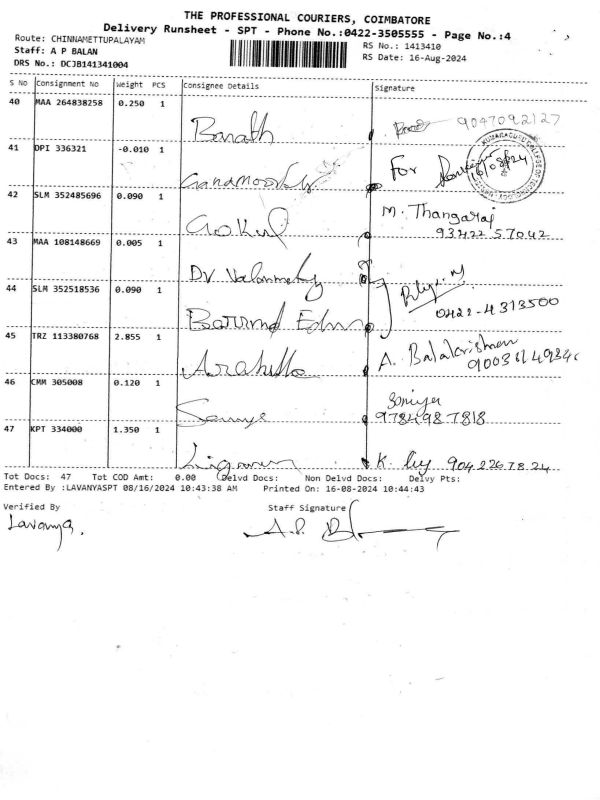 THE PROFESSIONAL COURIERS, COIMBATORE
Delivery Runsheet - SPT - Phone No.:0422-3505555 - Page No.:4
Route: CHINNAMETTUPALAYAM
Staff: A P BALAN
DRS No.: DCJB141341004
RS No.: 1413410
RS Date: 16-Aug-2024
S No Consignment No Weight PCS Consignee Details Signature
40 MAA 264838258 0.250 1 Barath 9047092127
41 DPI 336321 -0.010 1 Ganamoorthy For 16/08/24
42 SLM 352485696 0.090 1 Gokul M. Thangaraj
93422 57042
43 MAA 108148669 0.005 1 Dr
44 SLM 352518536 0.090 1 0422-4313500
45 TRZ 113380768 2.855 1 A. Balakrishnan
46 CMM 305008 0.120 1
9784987818
47 KPT 334000 1.350 1 K. 9042267824
Tot Docs: 47 Tot COD Amt: 0.00 Delvd Docs: Non Delvd Docs: Delvy Pts:
Entered By :LAVANYASPT 08/16/2024 10:43:38 AM Printed On: 16-08-2024 10:44:43
Verified By Staff Signature
Lavanya.